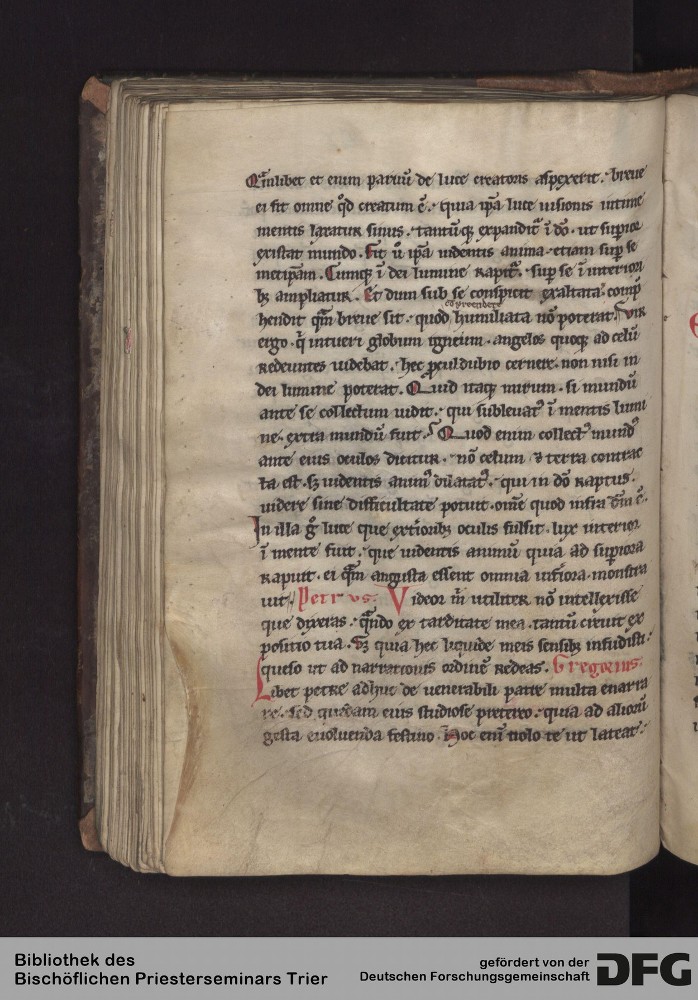 Qm̄libet et enim paruū de luce creatoris aspexerit · breue
ei fit omne qd̄ creatum ē · quia ip̄a luce uisionis intime
mentis laxatur sinus · tantūq; expandit᷑ ī dō · ut sup̄ior
existat mundo . Fit ū ip̄a uidentis anima · etiam sup̄ se
metip̄am . Cumq; ī dei lumine rapit᷑ · sup̄ se ī interiori
b; ampliatur . Et dum sub se conspicit exaltata · comp̄
comprendere
hendit qm̄ breue sit · quod humiliata nō poterat . Vir
ergo · q̄ intueri globum igneum · angelos quoq; ad celū
redeuntes uidebat · hec proculdubio cernere · non nisi in
dei lumine poterat . Quid itaq; mirum · si mundū
ante se collectum uidit · qui subleuatꝰ ī mentis lumi
ne · extra mundū fuit . Quod enim collectꝰ mundꝰ
ante eius oculos dicitur · nō celum & terra contrac
ta est · s; uidentis animꝰ dilatatꝰ · qui in dō raptus ·
uidere sine difficultate potuit · om̄e quod infra dm̄ ē .
In illa g̊ luce que extīorib; oculis fulsit · lux interior
ī mente fuit · que uidentis animū quia ad sup̄iora
rapuit · ei qm̄ angusta essent omnia inf̄iora · monstra
uit . Petrvs . Videor m̄ utiliter nō intellexisse
que dixeras · qn̄do ex tarditate mea · tantū creuit ex
positio tua . S; quia hec liquide meis sensib; infudisti ·
queso ut ad narrationis ordinē redeas . Gregorius .
Libet petre adhuc de uenerabili patre multa enarra
re · sed quedam eius studiose pretereo · quia ad aliorū
gesta euoluenda festino . Hoc enī nolo te ut lateat ·
Bibliothek des
Bischöflichen Priesterseminars Trier
gefördert von der
Deutschen Forschungsgemeinschaft
DFG